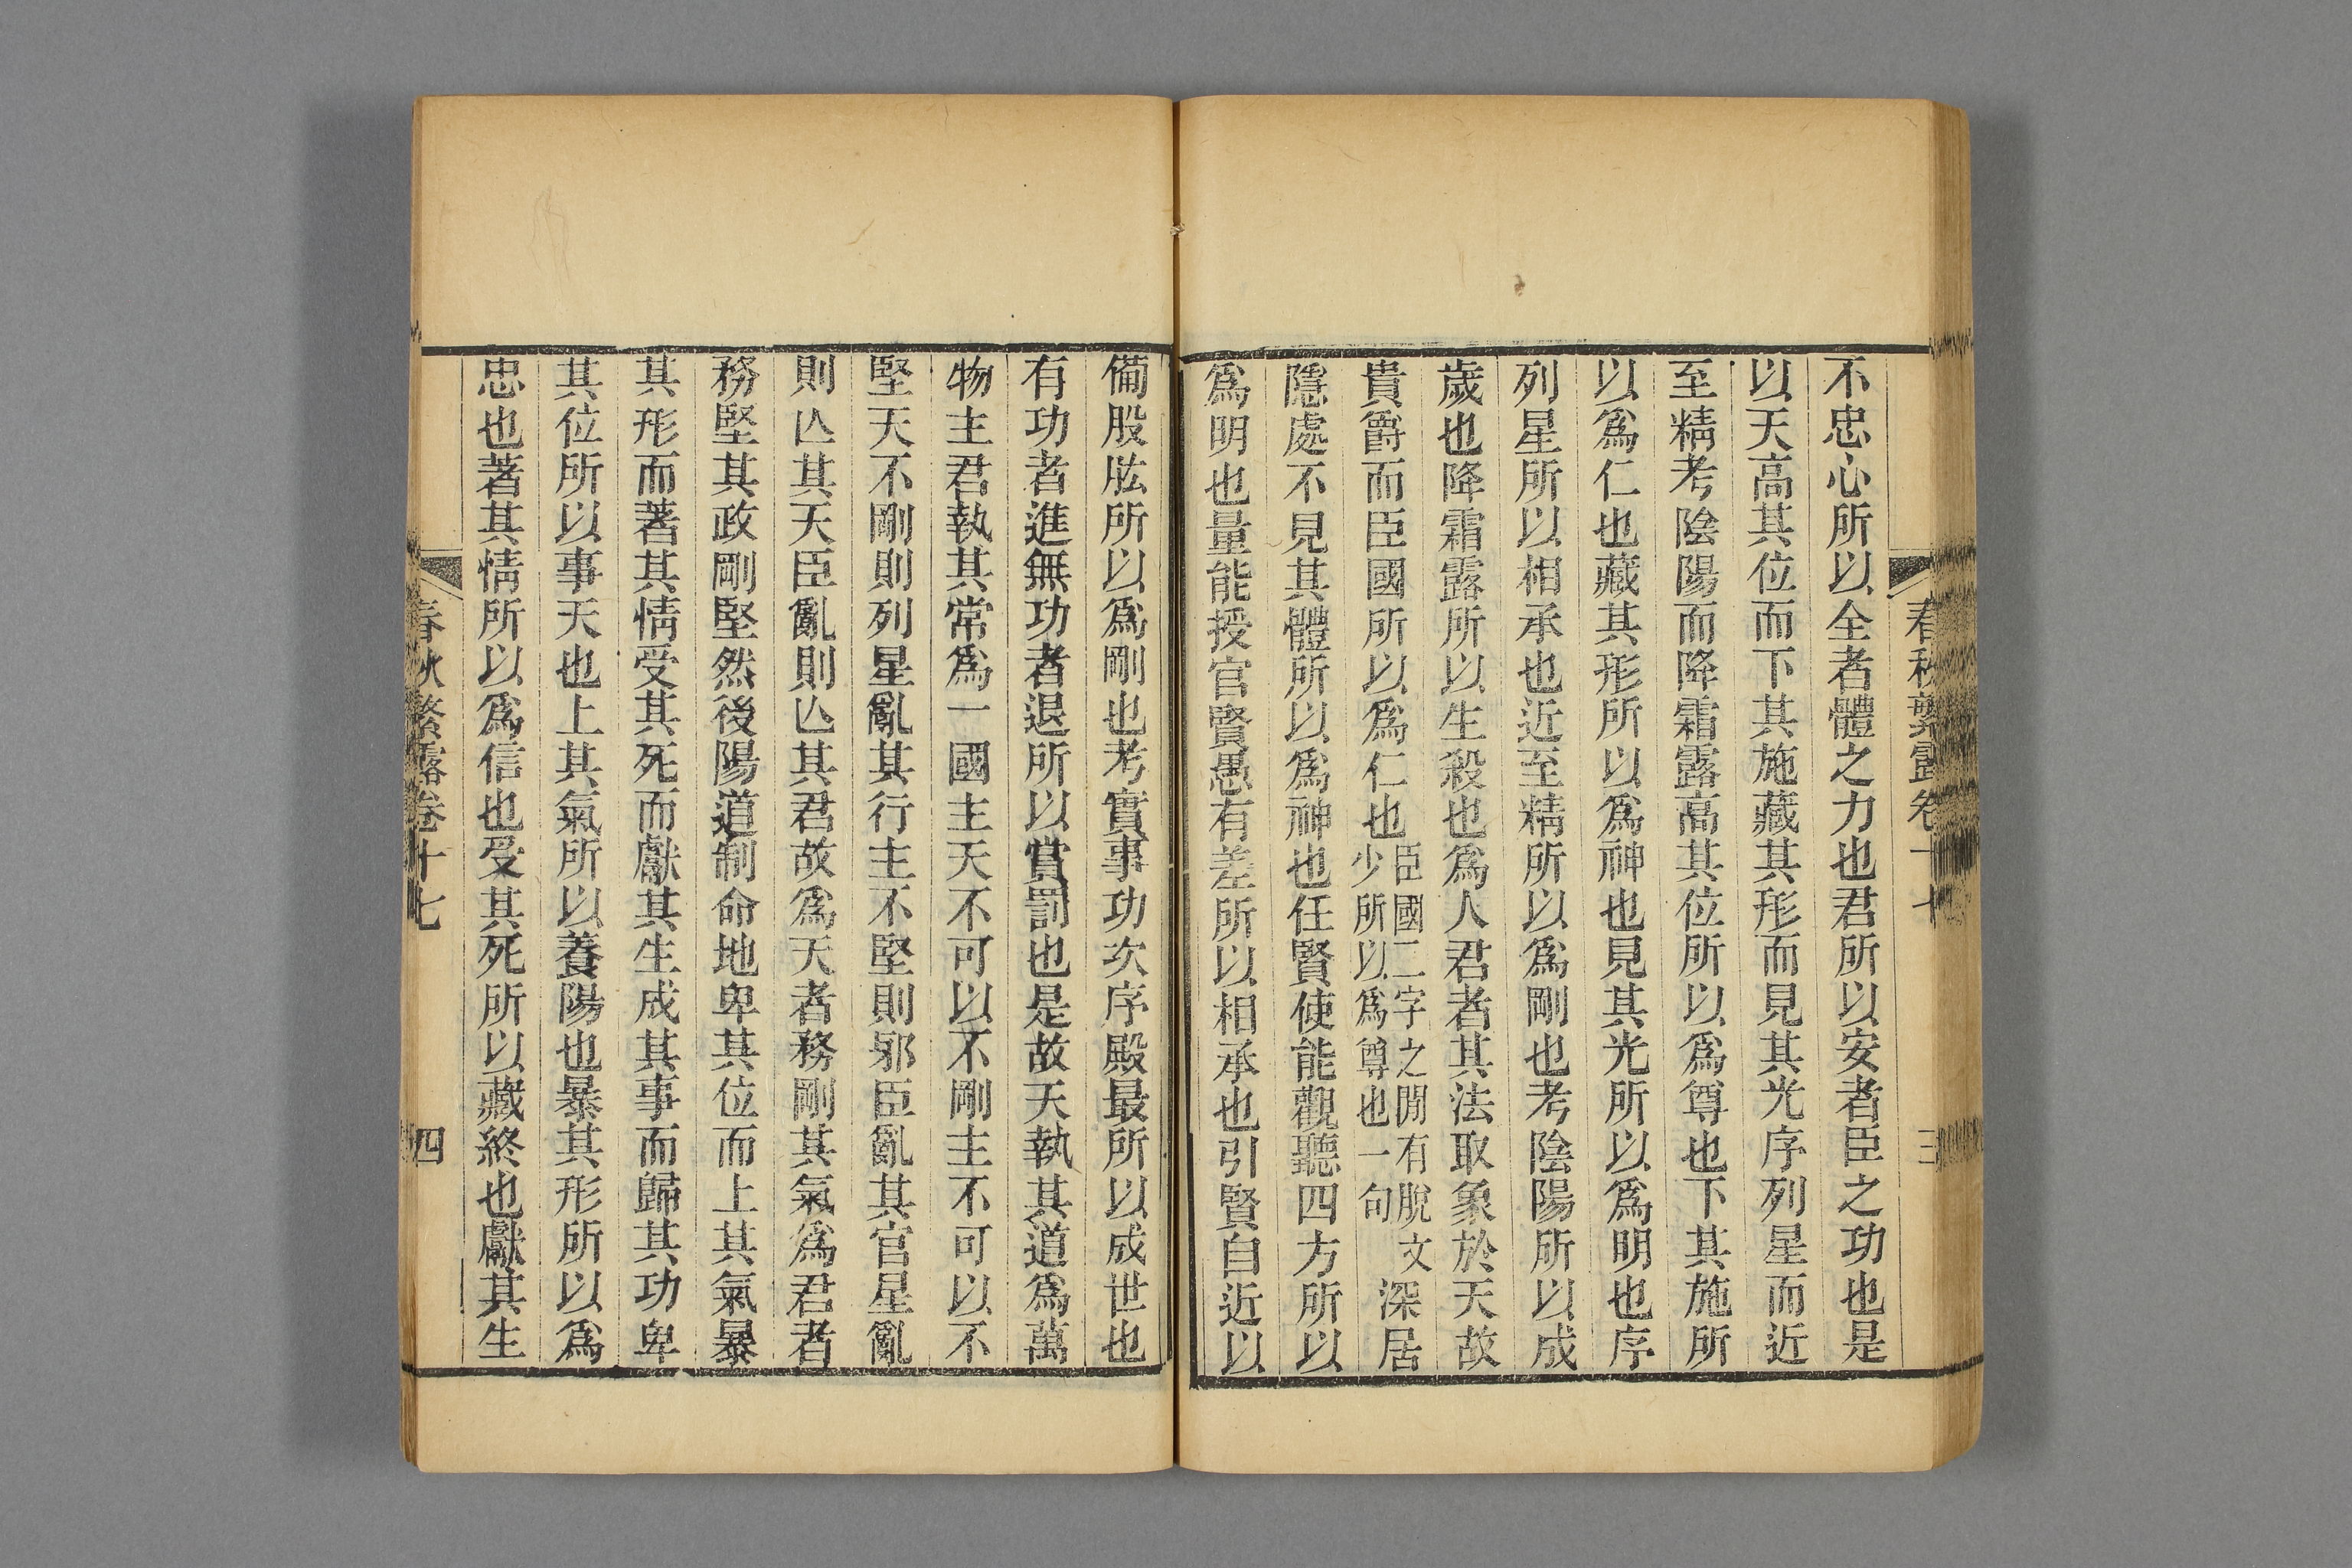 春秋繁露卷十七
三
不忠心所以全者體之力也君所以安者臣之功也是
以天高其位而下其施藏其形而見其光序列星而近
至精考陰陽而降霜露高其位所以爲尊也下其施所
以爲仁也藏其形所以爲神也見其光所以爲明也序
列星所以相承也近至精所以爲剛也考陰陽所以成
歲也降霜露所以生殺也爲人君者其法取象於天故
貴爵而臣國所以爲仁也
臣國二字之閒有脫文
少所以爲尊也一句
深居
隱處不見其體所以爲神也任賢使能觀聽四方所以
爲明也量能授官賢愚有差所以相承也引賢自近以
僃股肱所以爲剛也考實事功次序殿最所以成世也
有功者進無功者退所以賞罰也是故天執其道爲萬
物主君執其常爲一國主天不可以不剛主不可以不
堅天不剛則列星亂其行主不堅則邪臣亂其官星亂
則亾其天臣亂則亾其君故爲天者務剛其氣爲君者
務堅其政剛堅然後陽道制命地卑其位而上其氣暴
其形而著其情受其死而獻其生成其事而歸其功卑
其位所以事天也上其氣所以養陽也暴其形所以爲
忠也著其情所以爲信也受其死所以藏終也獻其生
春秋繁露卷十七
四